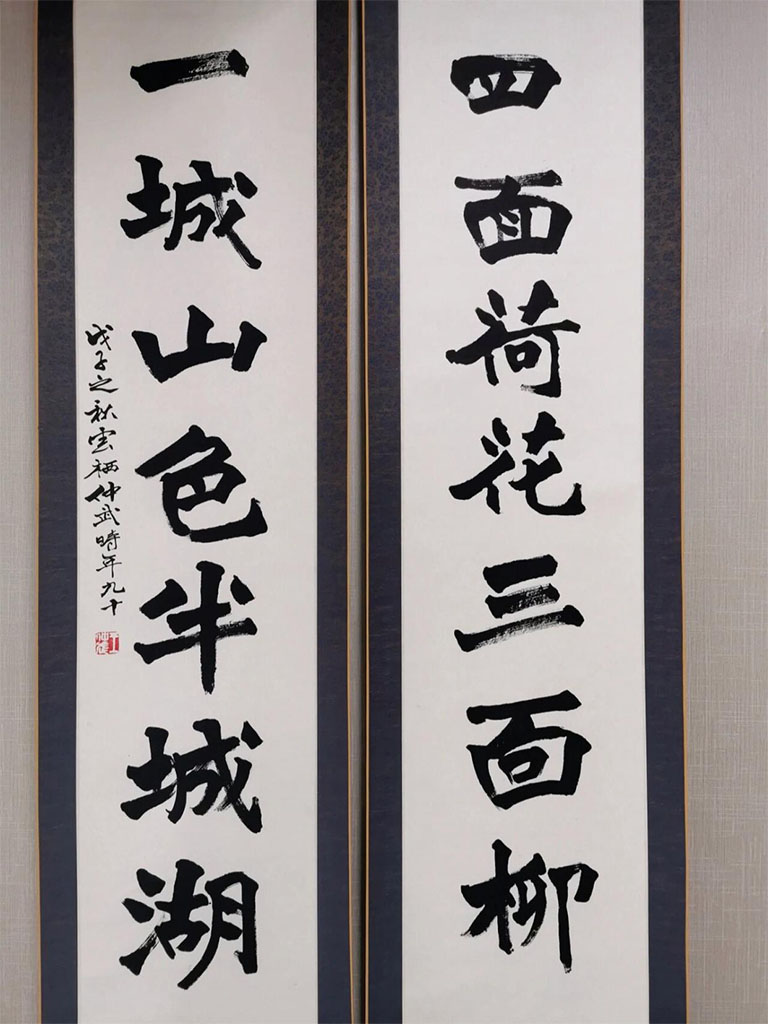 四面荷花三面柳
一城山色半城湖
戊子之秋雲栖仲武時年九十